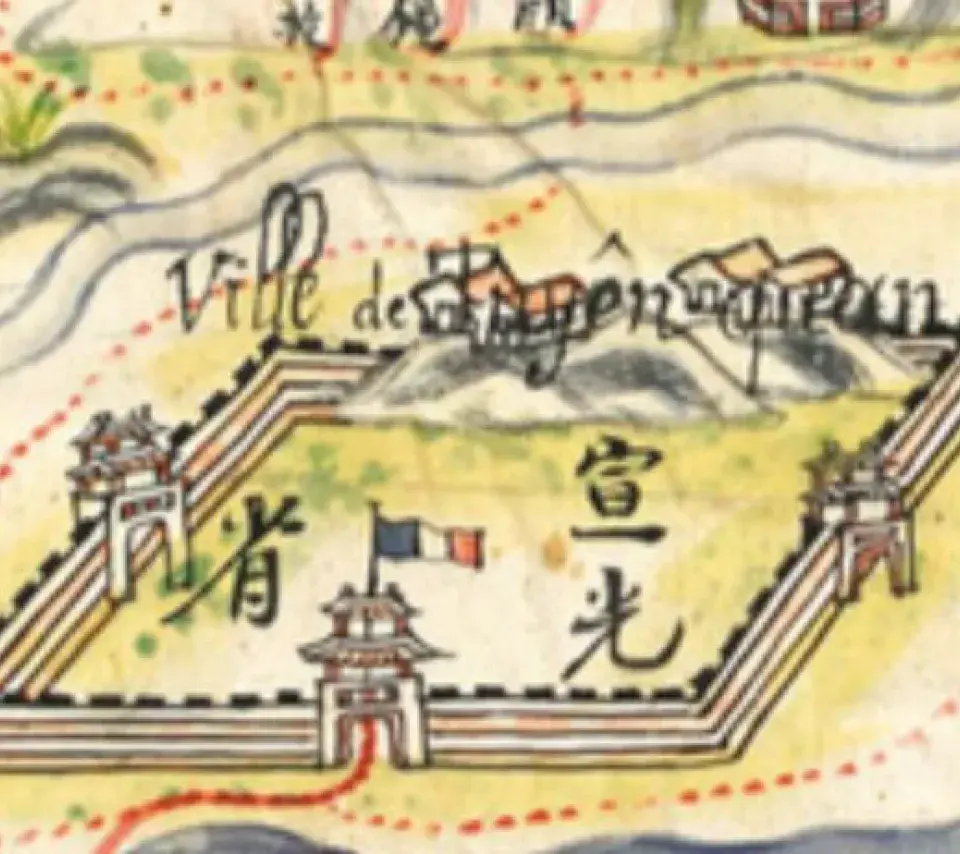 Ville de Tuyên quan
宣光
省